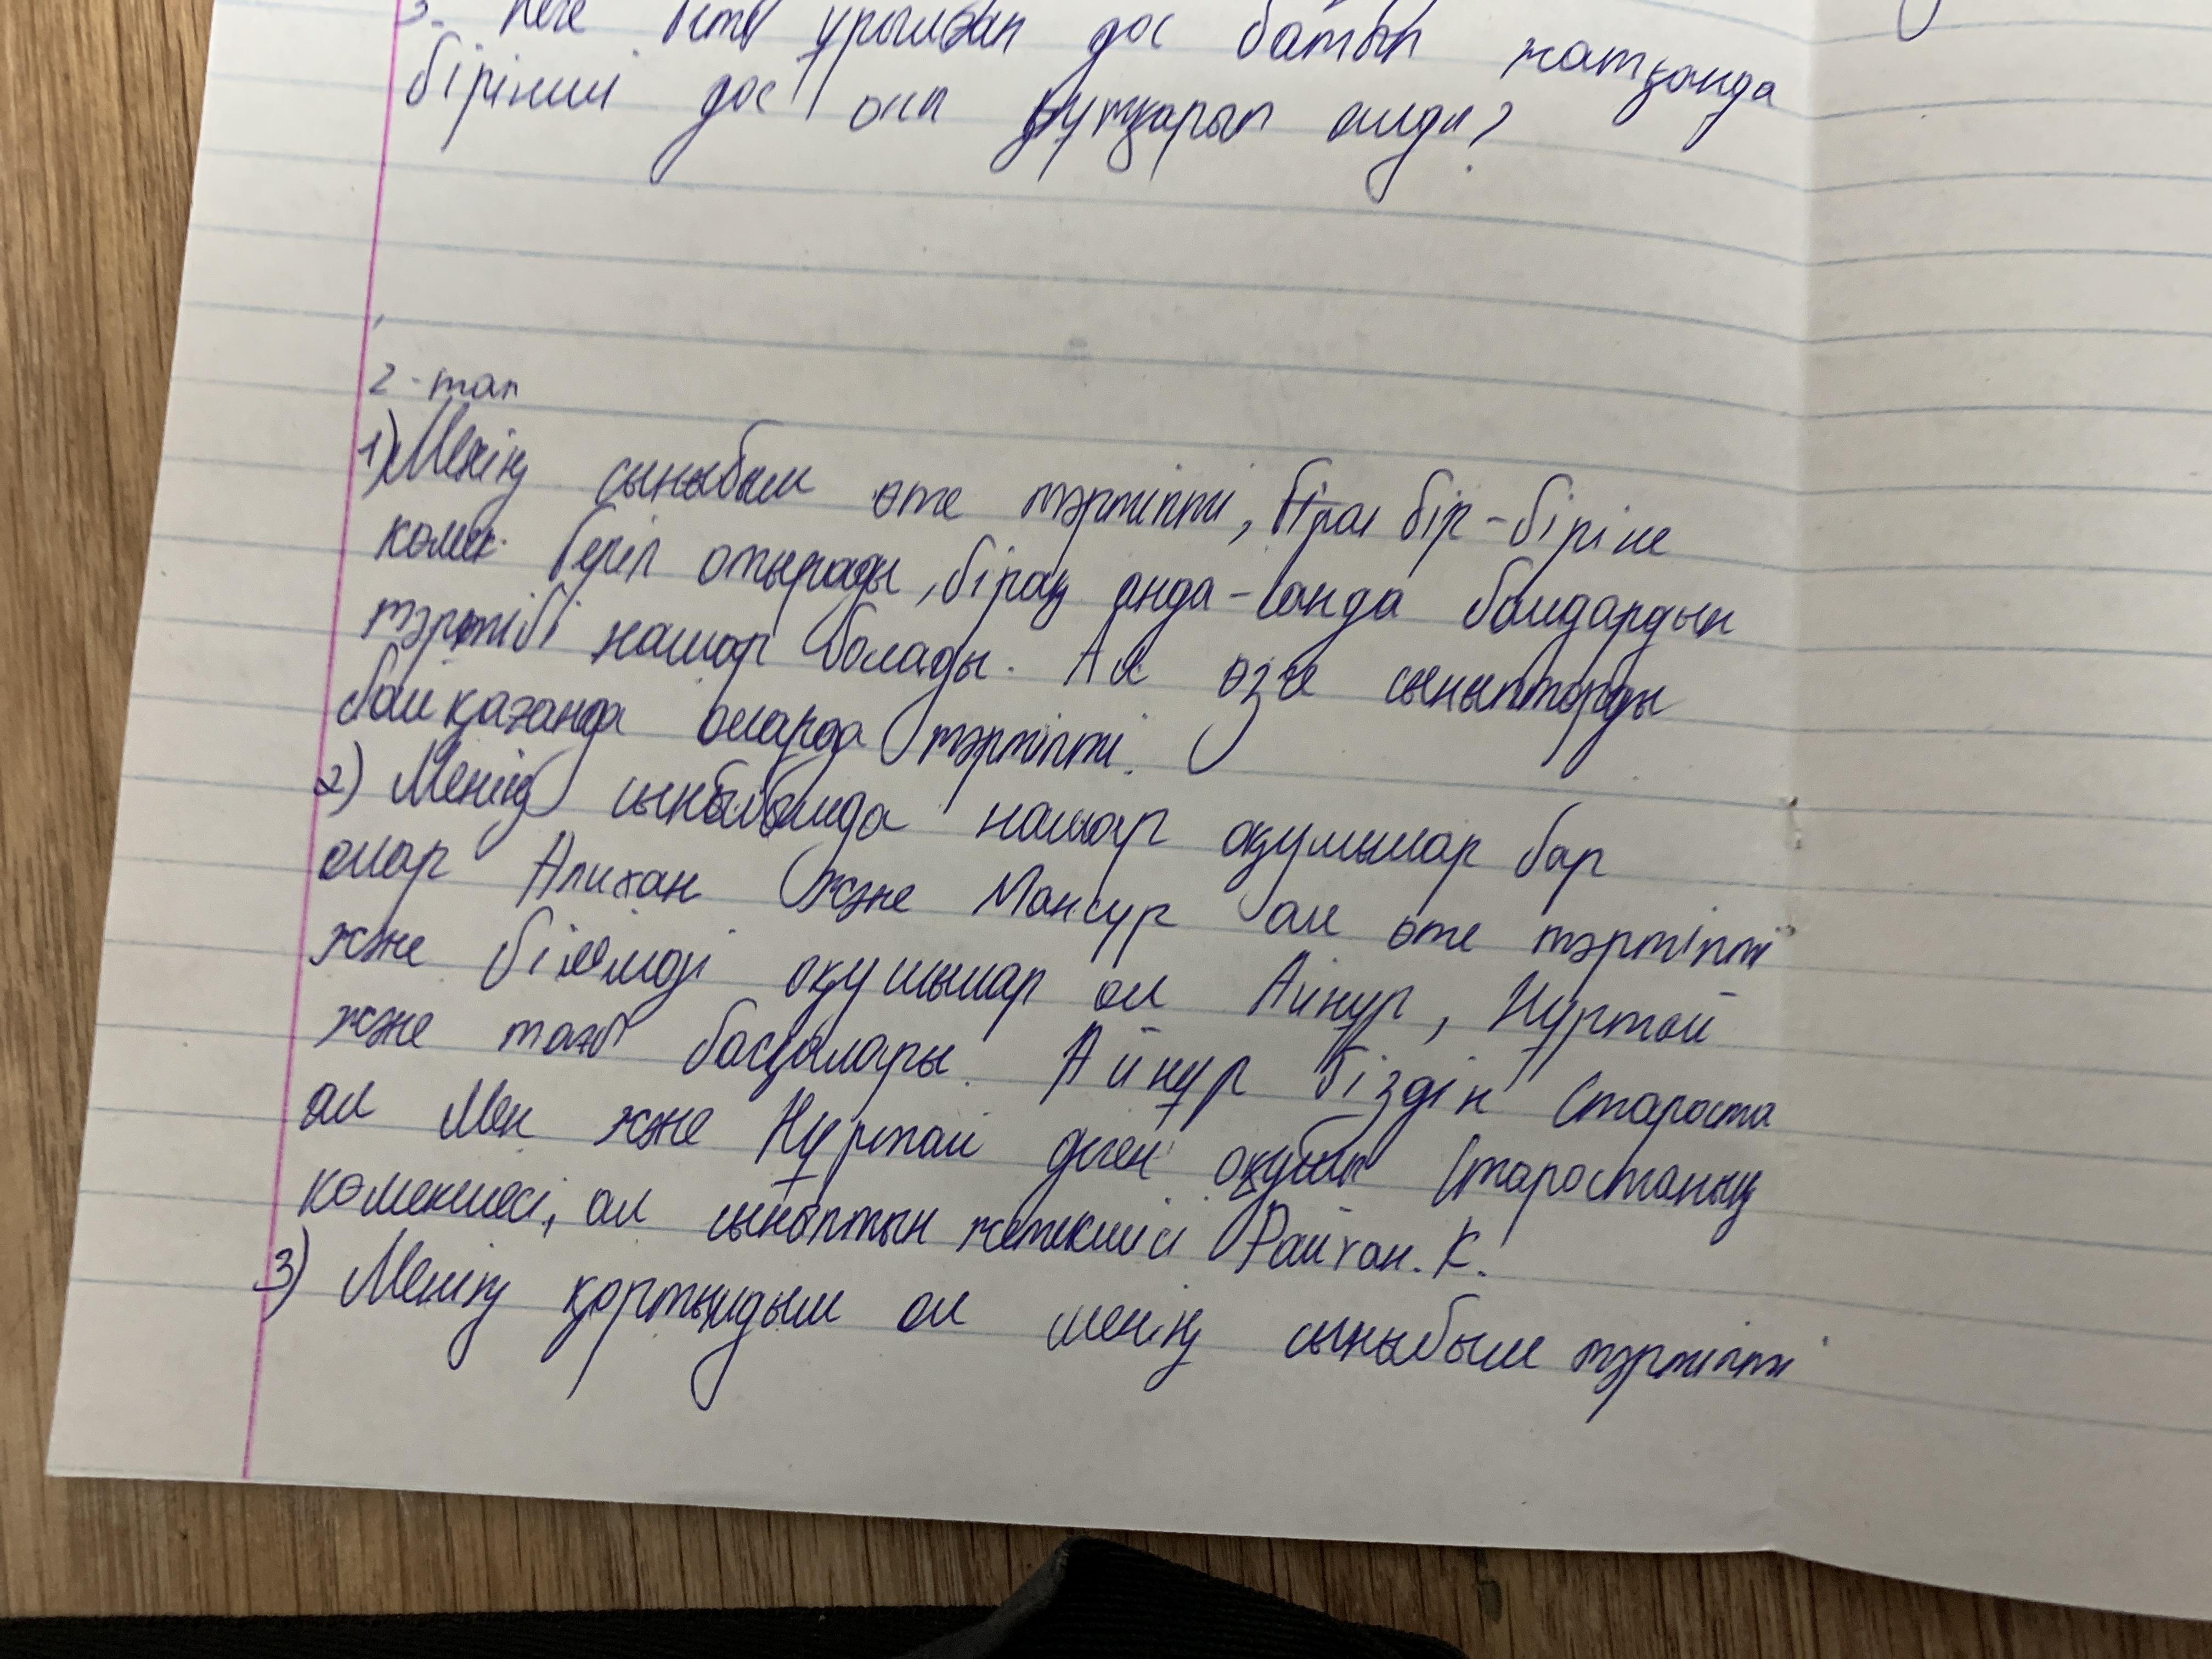 3. Неге бетін ұрылған дос батып жатқанда
бірінші дос оны құтқарып алды?
2-тап
1) Менің сыныбым өте тәртіпті, бір-біріне
көмек беріп отырады, бірақ анда-санда балдардын
тәртібі нашар болады. Ал өзге сыныптарды
байқағанда оларда тәртіпті.
2) Менің сыныбымда нашар оқушылар бар
олар Алихан және Мансур ал өте тәртіпті
және білімді оқушылар ол Айнұр, Нұртай
және тағы басқалары. Айнұр біздін староста
ал Мен және Нұртай деген оқушы старостаның
көмекшесі, ал сыныптын жетекшісі Райхан. К.
3) Менің қортындым ол менің сыныбым тәртіпті